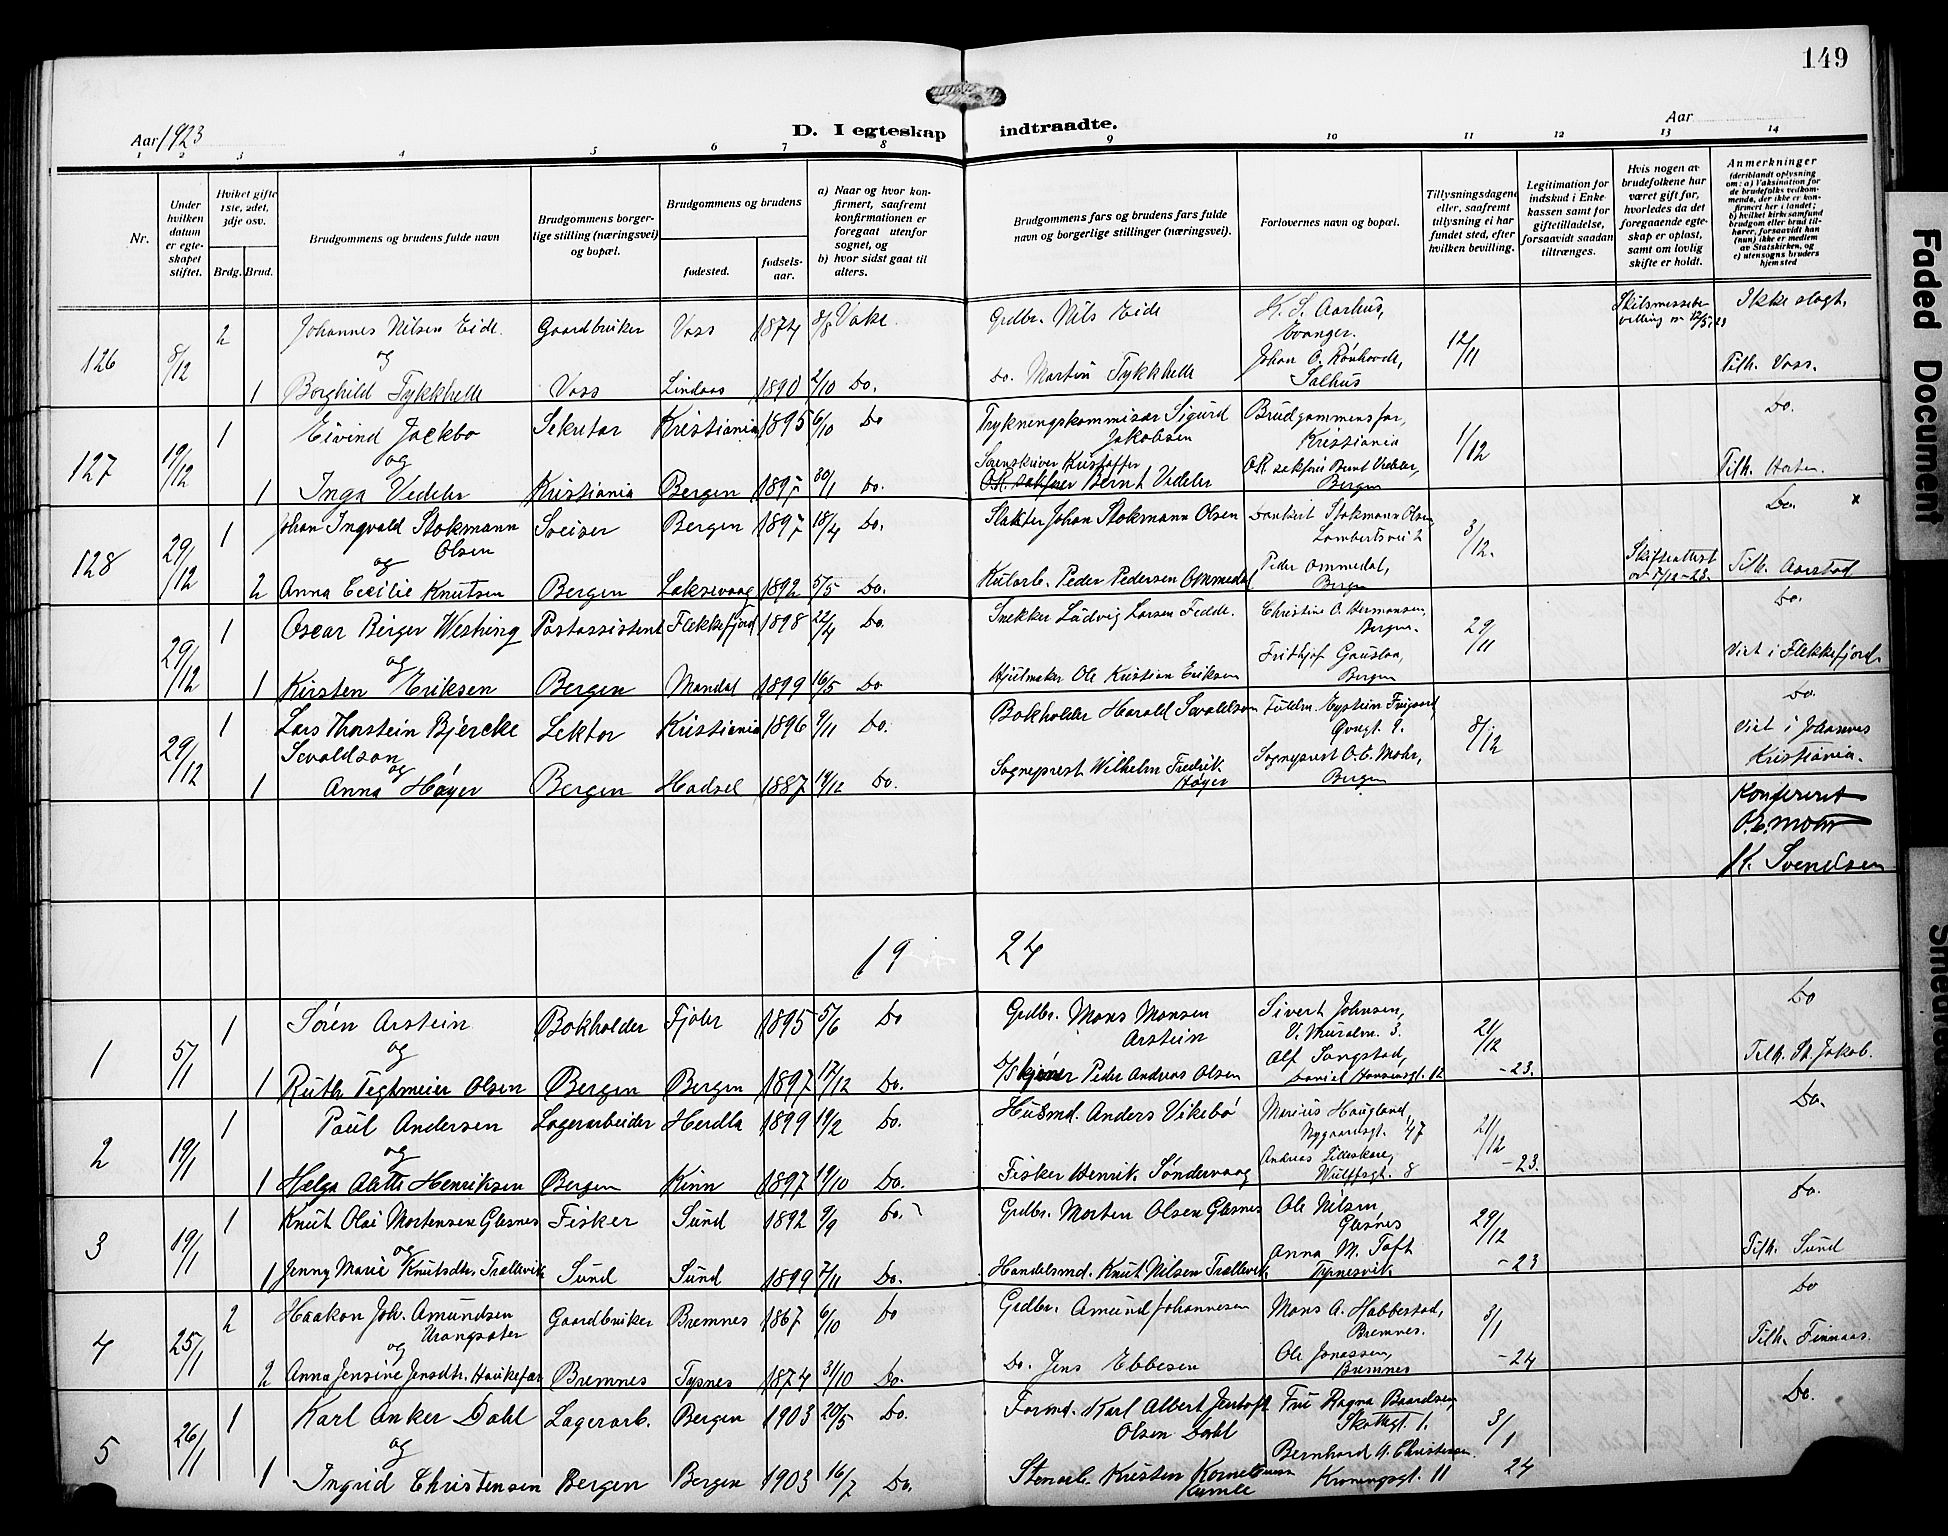 149
Aar 1923
D. I egteskap indtraadte.
Aar
1 2 3 4 5 6 7 8 9 10 11 12 13 14
Nr.
Under hvilken datum er egteskapet stiftet.
Hvilket gifte 1ste, 2det, 3dje osv.
Brdg. Brud.
Brudgommens og brudens fulde navn
Brudgommens borgerlige stilling (næringsvei) og bopæl.
Brudgommens og brudens
fødested.
fødselsaar.
a) Naar og hvor konfirmert, saafremt konfirmationen er foregaat utenfor sognet, og
b) hvor sidst gaat til alters.
Brudgommens fars og brudens fars fulde navn og borgerlige stillinger (næringsvei).
Forlovernes navn og bopæl.
Tillysningsdagene eller, saafremt tillysning ei har fundet sted, efter hvilken bevilling.
Legitimation for indskud i Enkekassen samt for giftetilladelse, forsaavidt saadan tiltrænges.
Hvis nogen av brudefolkene har været gift før, hvorledes da det foregaaende egteskap er opløst, samt om lovlig skifte er holdt.
Anmerkninger (deriblandt oplysning om: a) Vaksination for de brudefolks vedkommende, der ikke er konfirmert her i landet; b) hvilket kirkesamfund brudgom eller brud tilhører, forsaavidt han (hun) ikke er medlem av Statskirken, og c) utensogns bruders hjemsted
126 8/12 2 Johannes Nilsen Eide Gaardbruker Voss 1874 8/8 Vake. Grdbr. Nils Eide K. S. Aarhus, Evanger. 12/11 Skilsmissebevilling Ikke slegt.
og
1 Borghild Tykkhelle Voss Lindaas 1890 2/10 Do. Do. Martin Tykkhelle Johan O. Rønhovde, Salhus Tilh. Voss.
127 19/12 1 Eivind Jackbo Sekretær Kristiania 1895 6/10 Do Trykningskommisær Sigurd Jakobsen Brudgommens far, Kristiania 1/12 Do.
og
1 Inga Vedeler Kristiania Bergen 1895 30/1 Do. Sorenskriver Kristoffer Bernt Vedeler O.R. sakfører Bernt Vedeler, Bergen Tilh. Horten.
128 29/12 1 Johan Ingvald Stokmann Olsen Sveiser Bergen 1897 18/4 Do. Slakter Johan Stokmann Olsen Stokmann Olsen 3/12. Do. x
og
2 Anna Cecilie Knutsen Bergen Laksevaag 1892 5/5 Do. Peder Pedersen Ommedal Peder Ommedal, Bergen Skifteattest Tilh. Aarstad
29/12 1 Oscar Birger Westring Postassistent Flekkefjord 1898 22/4 Do. Snekker Ludvig Larsen Fedde. Christine O. Hermansen, Bergen. 29/11 Do.
og
1 Kirsten Eriksen Bergen Mandal 1899 16/5 Do Hjulmaker Ole Kristian Eriksen Fridtjof Gauslaa, Bergen Viet i Flekkefjord
29/12 1 Lars Thorstein Bjercke Sevaldson Lektor Kristiania 1896 9/11 Do. Bokholder Harald Sevaldson Øvregt. 9. 8/12 Do.
og
1 Anna Høyer Bergen Hadsel 1887 19/12 Do. Sogneprest Wilhelm Fredrik Høyer Sogneprest O. E. Mohr, Bergen Viet i Johannes Kristiania.
Konfereret
O. E. Mohr
K. Svendsen
19 24
1 5/1 1 Søren Arstein Bokholder Fjaler 1895 5/6 Do Grdbr. Mons Monsen Arstein Sivert Johnsen, V. Muralm. 3. 21/12 -23. Do
og
1 Ruth Teghmeier Olsen Bergen Bergen 1897 17/12 Do. Peder Andreas Olsen Alf Sangstad, Daniel Hansensgt. 12 Tilh. St. Jakob.
2 19/1 1 Paul Andersen Lagerarbeider Herdla 1899 19/2 Do. Husmd. Anders Vikebø Marius Haugland, Nygaardsgt. 47 21/12 -23. Do.
og
1 Helga Alette Henriksen Bergen Kinn 1897 19/10 Do. Fisker Henrik Søndervaag Andreas Lilleskare, Wulffsgt. 8
3 19/1 1 Knut Olai Mortensen Glesnes Fisker Sund 1892 9/9 Do. Grdbr. Morten Olsen Glesnes Ole Nilsen, Glesnes 29/12 -23 Do.
og
1 Jenny Marie Knutsdtr. Trællevik Sund Sund 1899 7/11 Do. Handelsmd. Knut Nilsen Trællevik Anna M. Toft Tilh. Sund
4 25/1 2 Haakon Joh. Amundsen Urangsæter Gaardbruker Bremnes 1867 6/10 Do Grdbr. Amund Johannesen Mons A. Habbestad, Bremnes. 3/1 -24 Do
og
2 Anna Jensine Jensdtr. Haukefær Bremnes Tysnes 1874 31/10 Do. Do. Jens Ebbesen Ole Jonassen, Bremnes Tilh. Finnaas.
5 26/1 1 Karl Anker Dahl Lagerarb. Bergen 1903 20/5 Do. Formd. Karl Albert Jentoft Olsen Dahl Fru Ragna Baardsen, Skottegt. 1. 3/1 24 Do.
og
1 Ingrid Christensen Bergen Bergen 1903 16/7 Do. Stenarb. Kristen Kornelius Bernhard A. Christensen Kroningsgt. 11
Faded Document